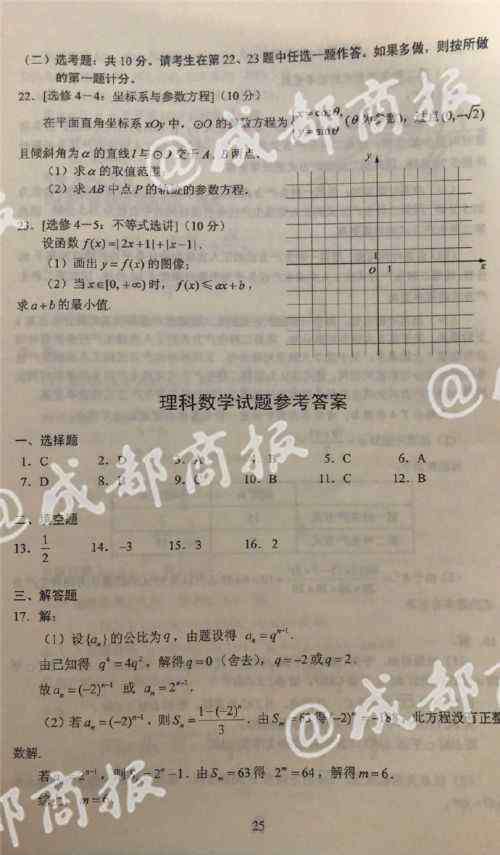 (二) 选考题：共 10 分。请考生在第 22、23 题中任选一题作答。如果多做，则按所做
的第一题计分。
22．[选修 4－4：坐标系与参数方程] (10 分)
在平面直角坐标系 xOy 中，⊙O 的参数方程为 { x = cosθ, y = sinθ (θ 为参数)，过点 (0, -√2)
且倾斜角为 α 的直线 l 与 ⊙O 交于 A，B 两点．
(1) 求 α 的取值范围；
(2) 求 AB 中点 P 的轨迹的参数方程．
23．[选修 4－5：不等式选讲] (10 分)
设函数 f(x)=|2x+1|+|x-1|．
(1) 画出 y = f(x) 的图像；
(2) 当 x∈[0, +∞) 时，f(x)≤ax+b，
求 a+b 的最小值．
y
1
O 1 x
理科数学试题参考答案
一、选择题
1．C 2．D 3．A 4．B 5．C 6．A
7．D 8．B 9．C 10．B 11．C 12．B
二、填空题
13．1/2 14．-3 15．3 16．2
三、解答题
17．解：
(1) 设{aₙ}的公比为 q，由题设得 aₙ = qⁿ⁻¹．
由已知得 q⁴ = 4q²，解得 q = 0 (舍去)，q = -2 或 q = 2．
故 aₙ = (-2)ⁿ⁻¹ 或 aₙ = 2ⁿ⁻¹．
(2) 若 aₙ = (-2)ⁿ⁻¹，则 Sₙ = (1-(-2)ⁿ)/3．由 Sₘ = 63 得 (-2)ᵐ = -188，此方程没有正整
数解．
若 aₙ = 2ⁿ⁻¹，则 Sₙ = 2ⁿ - 1．由 Sₘ = 63 得 2ᵐ = 64，解得 m = 6．
综上，m = 6．
25
@成都商报